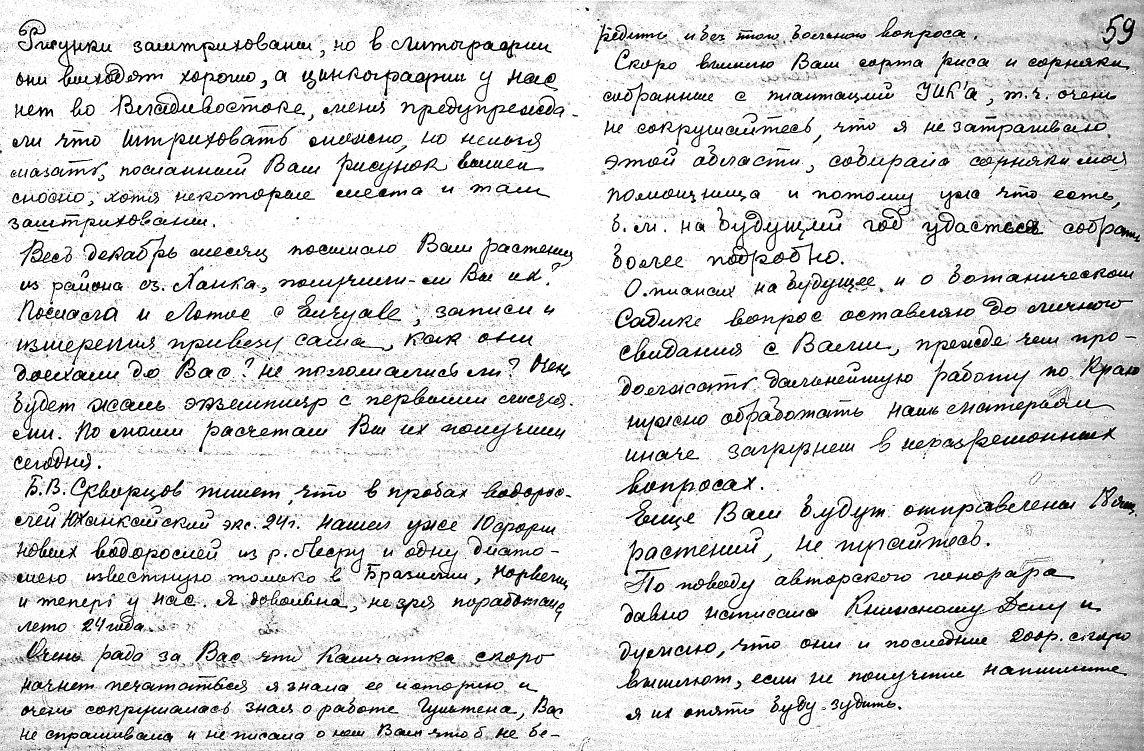 Рисунки заштрихованы, но в литографии
они выходят хорошо, а цинкографии у нас
нет во Владивостоке, меня предупрежда-
ли что штриховать можно, но нельзя
мазать, посланный Вам рисунок вышел
сносно, хотя некоторые места и там
заштрихованы.
Весь декабрь месяц посылаю Вам растения
из района оз. Ханка, получили-ли Вы их?
Послала и Лотос с Евриале, записи и
измерения привезу сама, как они
доехали до Вас? не поломались ли? Очень
будет жаль экземпляр с первыми листья-
ми. По моим расчетам Вы их получили
сегодня.
Б.В. Скворцов пишет, что в пробах водорос-
лей Ю Ханкайский экс. 24 г. нашел уже 10 форм
новых водорослей из р. Лефу и одну диато-
мею известную только в Бразилии, Норвегии
и теперь у нас. Я довольна, не зря поработала
лето 24 года.
Очень рада за Вас что Камчатка скоро
начнет печататься я знала ее историю и
очень сокрушалась зная о работе Гультена, Вас
не спрашивала и не писала о нем Вам чтоб не бе-
59
редить и без того больной вопроса.
Скоро вышлю Вам сорта риса и сорняки
собранные с плантаций, т.ч. очень
не сокрушайтесь, что я не затрагиваю
этой области, собирала сорняки моя
помощница и потому уж что есть,
б.м. на будущий год удасться собрать
более подробно.
О планах на будущее и о ботаническом
Садике вопрос оставляю до личного
свидания с Вами, прежде чем про-
должать дальнейшую работу по Краю
нужно обработать наш материал
иначе загрузнем в неразрешонных
вопросах.
Еще Вам будут отправлены 18 ящ.
растений, не пугайтесь.
По поводу авторского гонорара
давно написала Книжному Делу и
думаю, что они и последние 200р. скоро
вышлют, если не получите напишите
я их опять буду зудить.